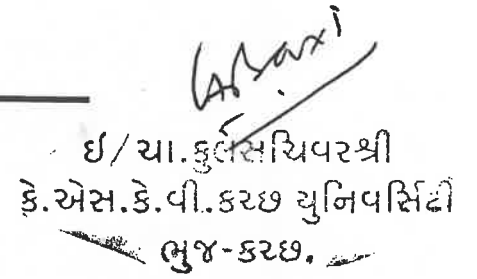 ઇ/ચા.કુલસચિવરશ્રી
કે.એસ.કે.વી.કચ્છ યુનિવર્સિટી
ભુજ-કચ્છ.